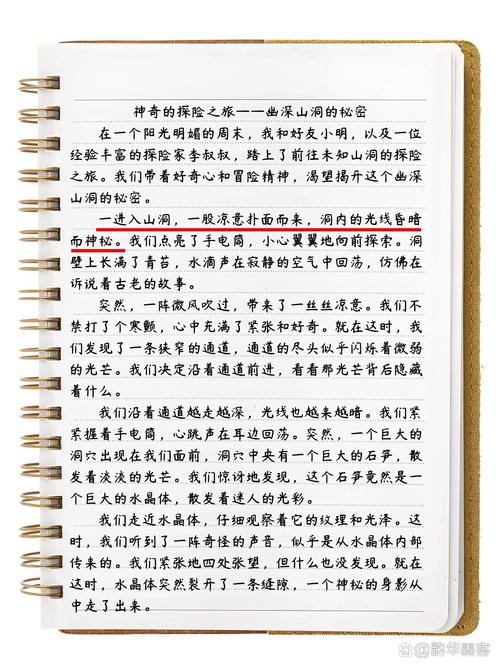 神奇的探险之旅——幽深山洞的秘密
在一个阳光明媚的周末，我和好友小明，以及一位
经验丰富的探险家李叔叔，踏上了前往未知山洞的探险之
旅。我们带着好奇心和冒险精神，渴望揭开这个幽深
山洞的秘密。
一进入山洞，一股凉意扑面而来，洞内的光线昏暗
而神秘。我们点亮了手电筒，小心翼翼地向前探索。洞
壁上长满了青苔，水滴声在寂静的空气中回荡，仿佛在
诉说着古老的故事。
突然，一阵微风吹过，带来了一丝丝凉意。我们不
禁打了个寒颤，心中充满了紧张和好奇。就在这时，我
们发现了一条狭窄的通道，通道的尽头似乎闪烁着微弱
的光芒。我们决定沿着通道前进，看看那光芒背后隐藏
着什么。
我们沿着通道越走越深，光线也越来越暗。我们紧
紧握着手电筒，心跳声在耳边回荡。突然，一个巨大的
洞穴出现在我们面前，洞穴中央有一个巨大的石笋，散
发着淡淡的光芒。我们惊讶地发现，这个石笋竟然是一
个巨大的水晶体，散发着迷人的光彩。
我们走近水晶体，仔细观察着它的纹理和光泽。这
时，我们听到了一阵奇怪的声音，似乎是从水晶体内部
传来的。我们紧张地四处张望，但什么也没发现。就在
这时，水晶体突然裂开了一条缝隙，一个神秘的身影从
中走了出来。
韵华墨客